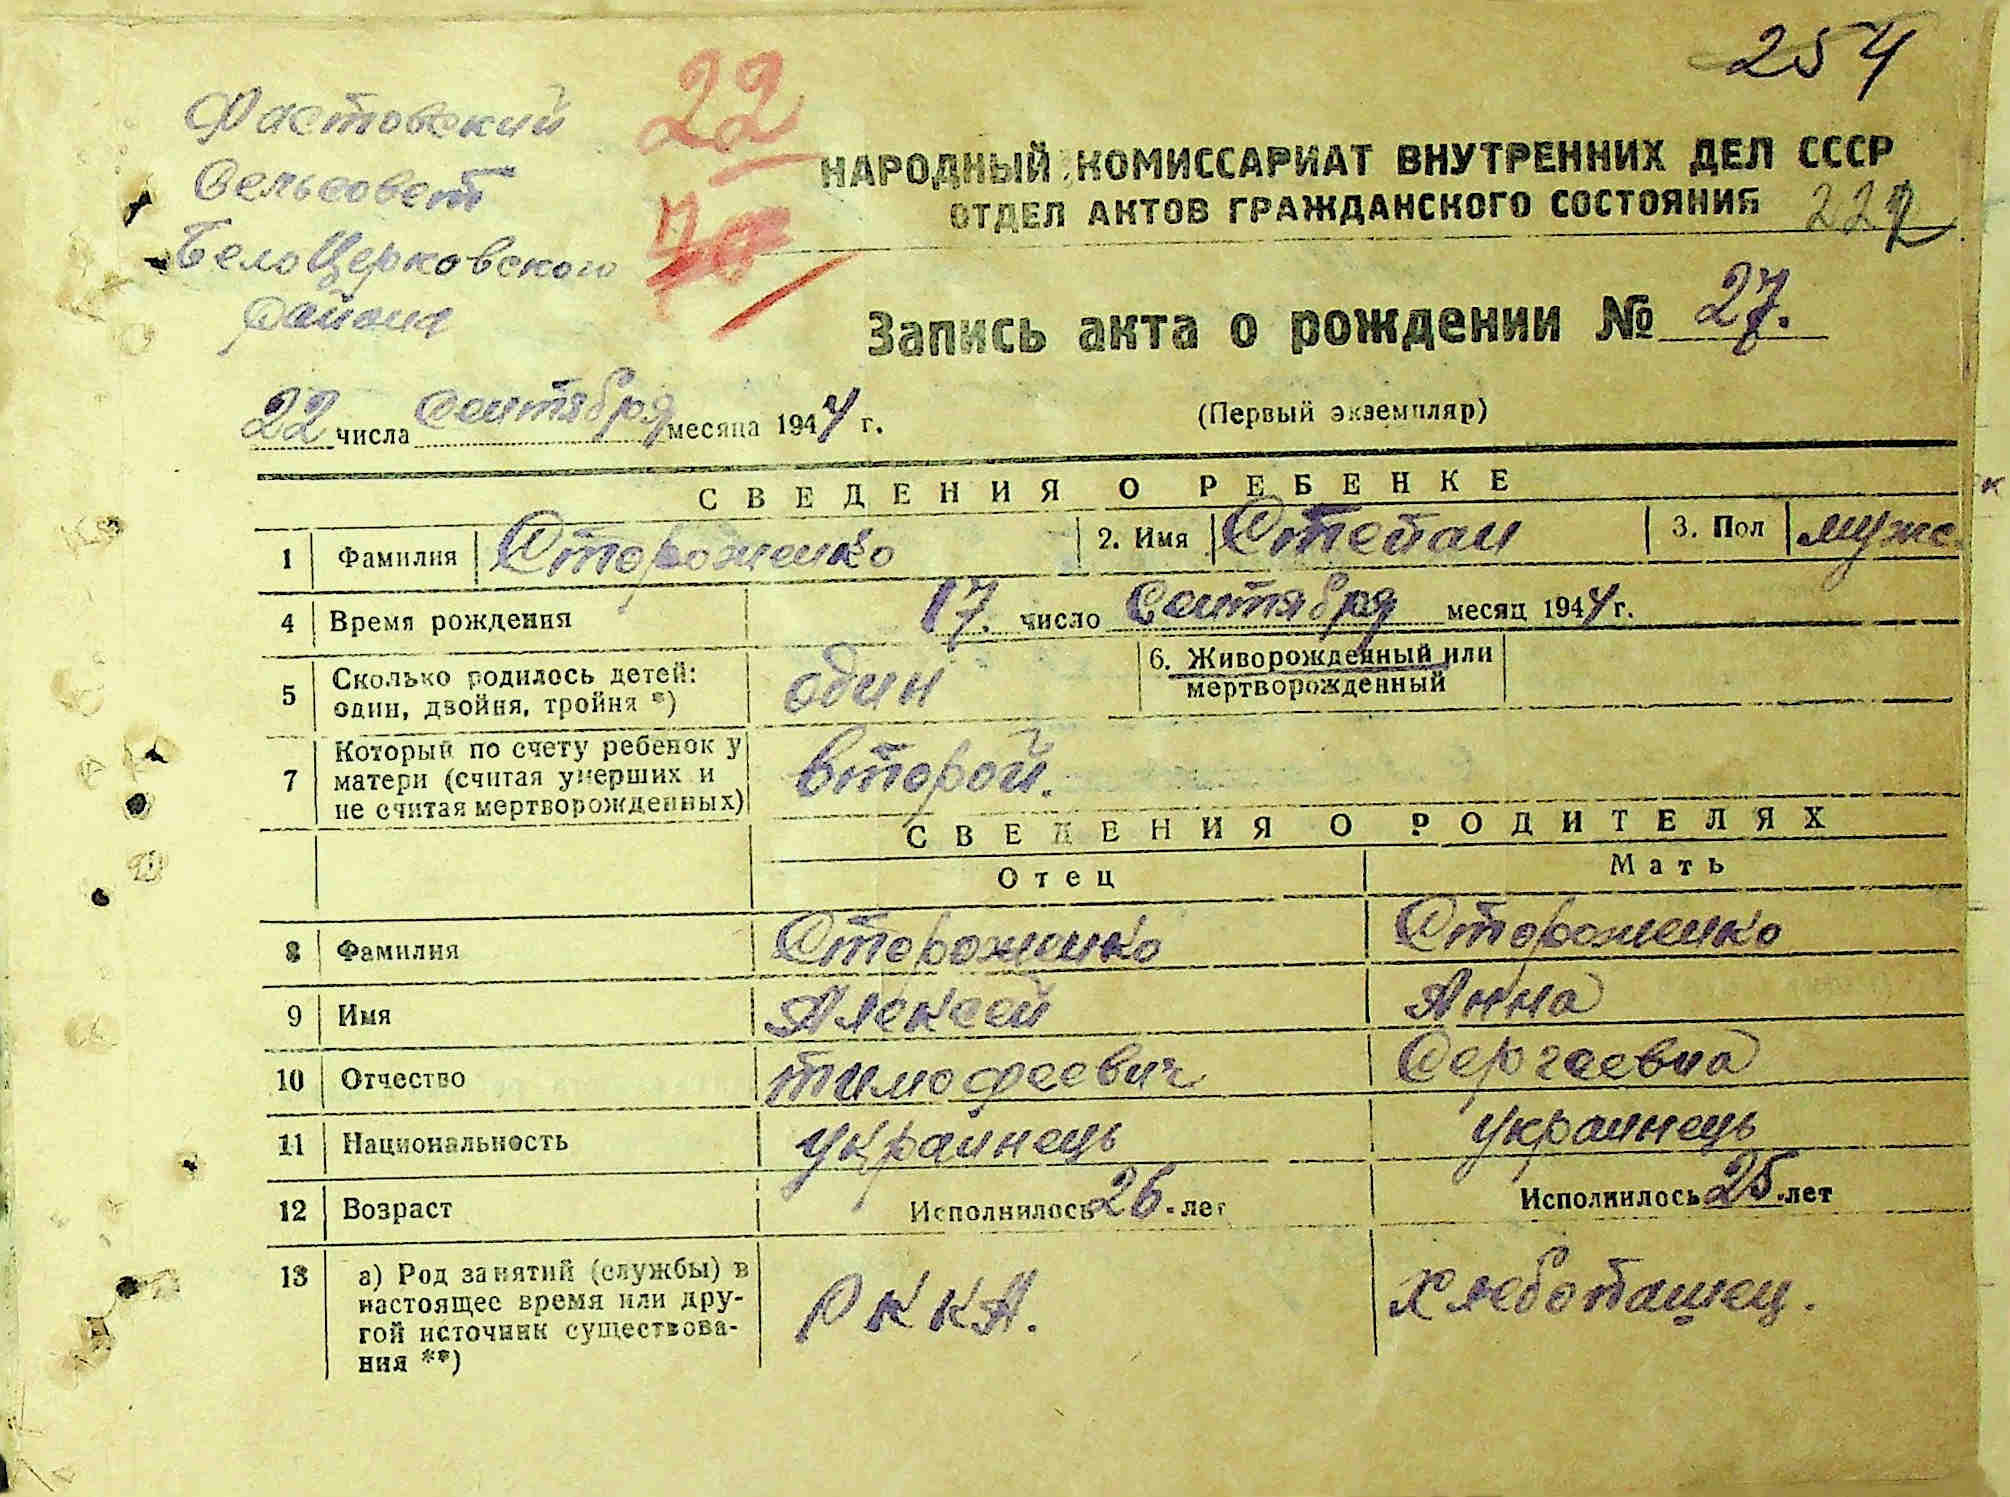 254
Фастовский
Сельсовет
БелоЦерковского
района
22
НАРОДНЫЙ КОМИССАРИАТ ВНУТРЕННИХ ДЕЛ СССР
ОТДЕЛ АКТОВ ГРАЖДАНСКОГО СОСТОЯНИЯ
Запись акта о рождении № 27.
22 числа Сентября месяца 1944 г.
(Первый экземпляр)
СВЕДЕНИЯ О РЕБЕНКЕ
1 Фамилия Стороженко 2. Имя Степан 3. Пол муже.
4 Время рождения 17. число Сентября месяц 1944 г.
5 Сколько родилось детей: один, двойня, тройня *) один 6. Живорожденный или мертворожденный
7 Который по счету ребенок у матери (считая умерших и не считая мертворожденных) второй.
СВЕДЕНИЯ О РОДИТЕЛЯХ
Отец Мать
8 Фамилия Стороженко Стороженко
9 Имя Алексей Анна
10 Отчество тимофеевич Сергеевна
11 Национальность украинець украинець
12 Возраст Исполнилось 26. лет Исполнилось 25. лет
13 а) Род занятий (службы) в
настоящее время или дру-
гой источник существова-
ния **)
РККА. Хлебопашец.